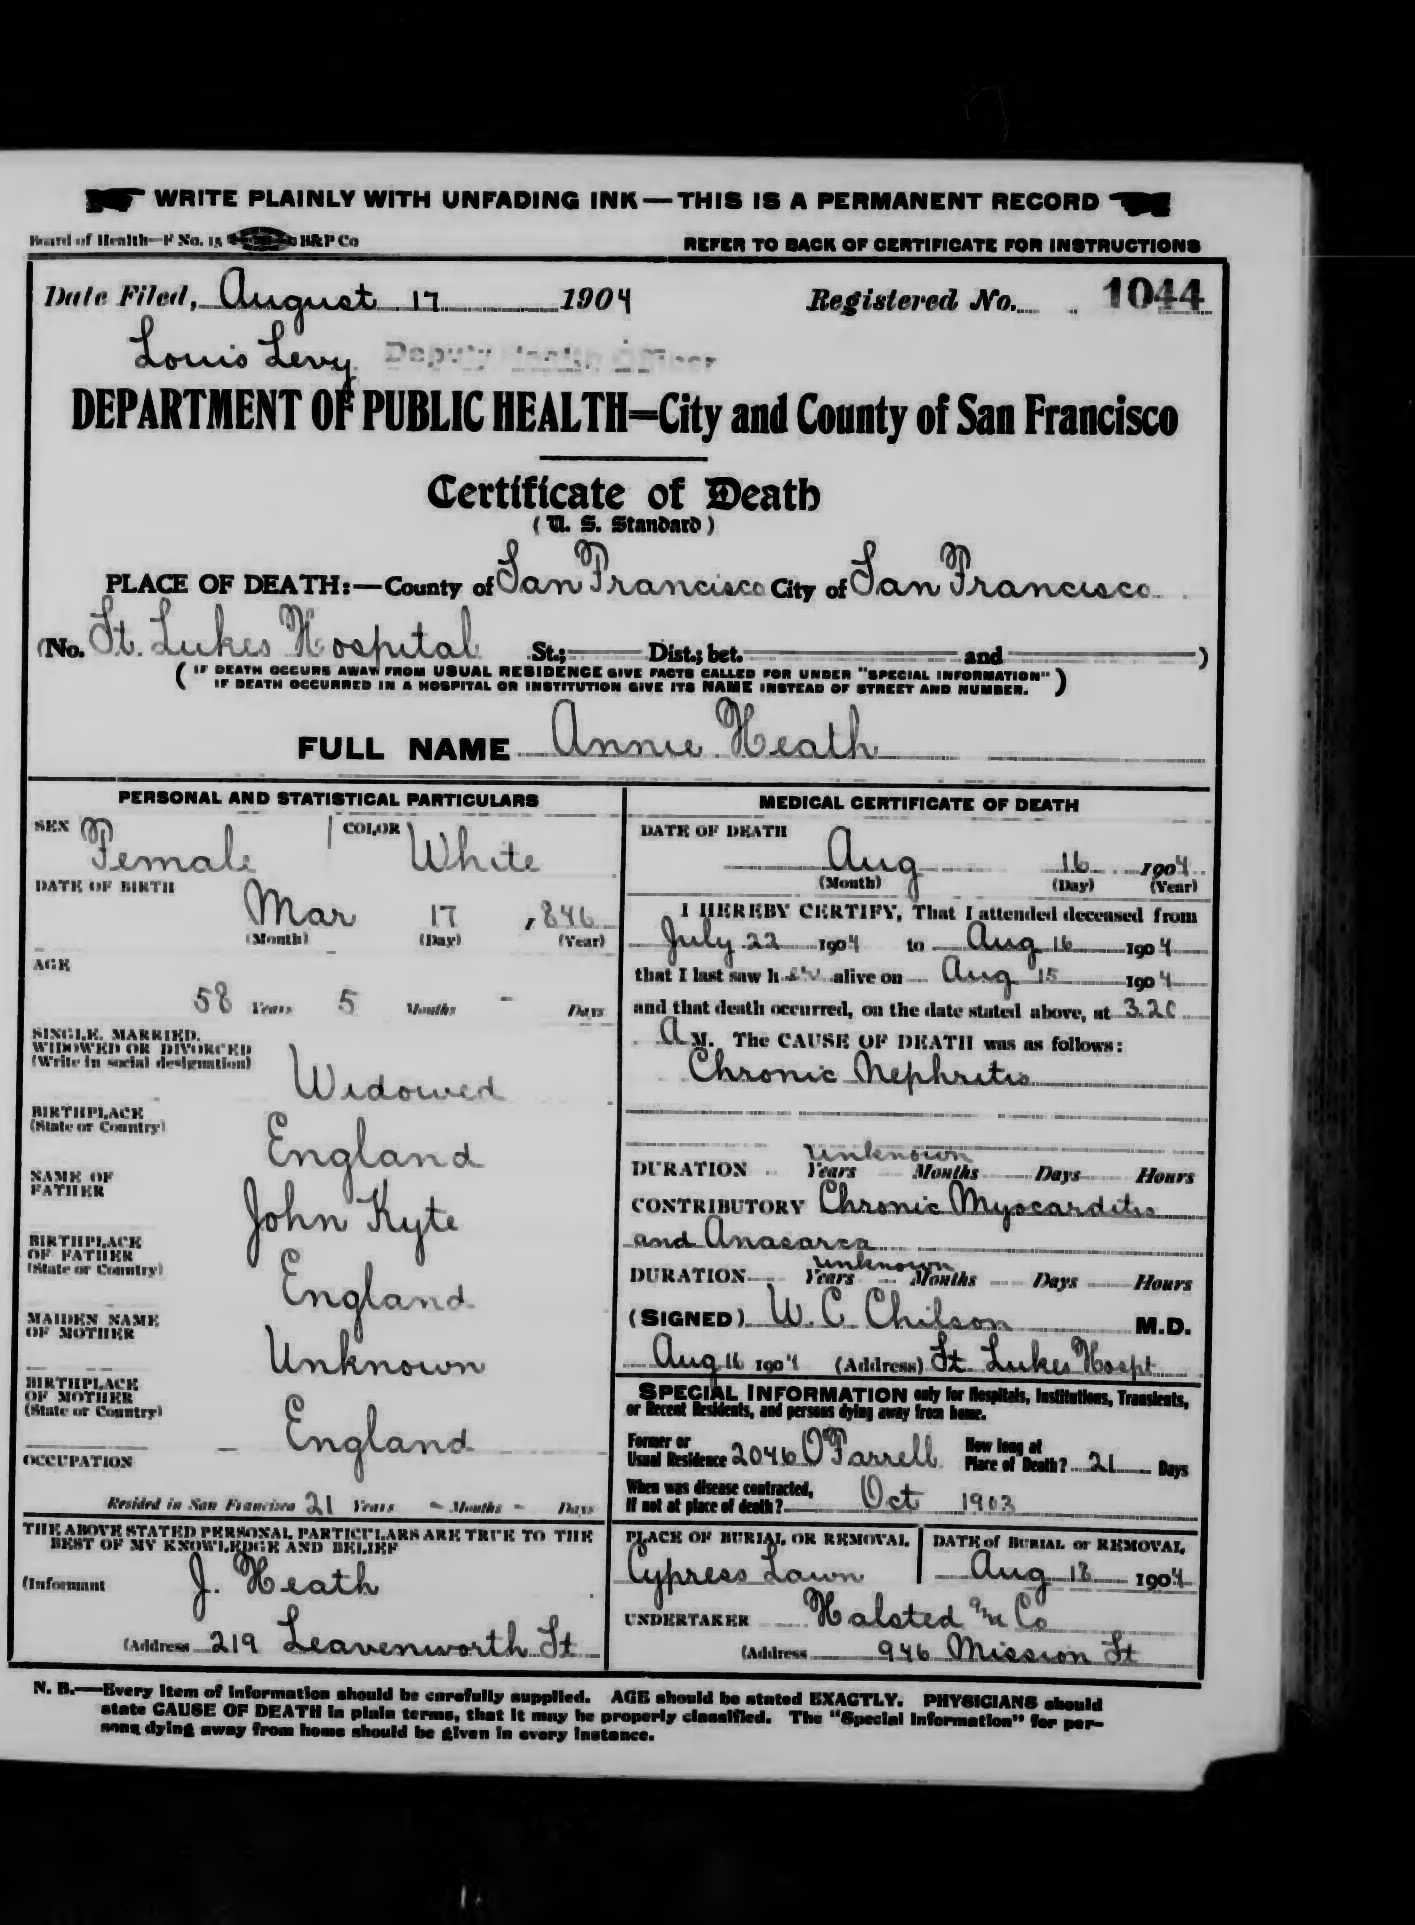 WRITE PLAINLY WITH UNFADING INK — THIS IS A PERMANENT RECORD
Board of Health—F No. 15 H&P Co REFER TO BACK OF CERTIFICATE FOR INSTRUCTIONS
Date Filed, August 17 1904 Registered No. 1044
Louis Levy Deputy Health Officer
DEPARTMENT OF PUBLIC HEALTH=City and County of San Francisco
Certificate of Death
(U. S. Standard)
PLACE OF DEATH:—County of San Francisco City of San Francisco
(No. St. Lukes Hospital St.; Dist.; bet. and )
(IF DEATH OCCURS AWAY FROM USUAL RESIDENCE GIVE FACTS CALLED FOR UNDER "SPECIAL INFORMATION"
IF DEATH OCCURRED IN A HOSPITAL OR INSTITUTION GIVE ITS NAME INSTEAD OF STREET AND NUMBER.)
FULL NAME Annie Heath
PERSONAL AND STATISTICAL PARTICULARS
SEX Female COLOR White
DATE OF BIRTH
Mar 17 ,846
(Month) (Day) (Year)
AGE
58 Years 5 Months - Days
SINGLE, MARRIED,
WIDOWED OR DIVORCED
(Write in social designation)
Widowed
BIRTHPLACE
(State or Country)
England
NAME OF
FATHER
John Kyte
BIRTHPLACE
OF FATHER
(State or Country)
England
MAIDEN NAME
OF MOTHER
Unknown
BIRTHPLACE
OF MOTHER
(State or Country)
England
OCCUPATION
Resided in San Francisco 21 Years - Months - Days
THE ABOVE STATED PERSONAL PARTICULARS ARE TRUE TO THE
BEST OF MY KNOWLEDGE AND BELIEF
(Informant J. Heath
(Address 219 Leavenworth St
MEDICAL CERTIFICATE OF DEATH
DATE OF DEATH
Aug 16 1904
(Month) (Day) (Year)
I HEREBY CERTIFY, That I attended deceased from
July 22 1904 to Aug 16 1904
that I last saw her alive on Aug 15 1904
and that death occurred, on the date stated above, at 3.20
A M. The CAUSE OF DEATH was as follows:
Chronic Nephritis
Unknown
DURATION Years Months Days Hours
CONTRIBUTORY Chronic Myocarditis
and Anasarca
Unknown
DURATION Years Months Days Hours
(SIGNED) W. C. Chilson M.D.
Aug 16 1904 (Address) St. Lukes Hospt
SPECIAL INFORMATION only for Hospitals, Institutions, Transients,
or Recent Residents, and persons dying away from home.
Former or
Usual Residence 2046 O'Farrell How long at
Place of Death? 21 Days
When was disease contracted,
If not at place of death? Oct 1903
PLACE OF BURIAL OR REMOVAL
Cypress Lawn
DATE of BURIAL or REMOVAL
Aug 18 1904
UNDERTAKER Halsted & Co
(Address 946 Mission St
N. B.—Every item of information should be carefully supplied. AGE should be stated EXACTLY. PHYSICIANS should
state CAUSE OF DEATH in plain terms, that it may be properly classified. The "Special Information" for per-
sons dying away from home should be given in every instance.